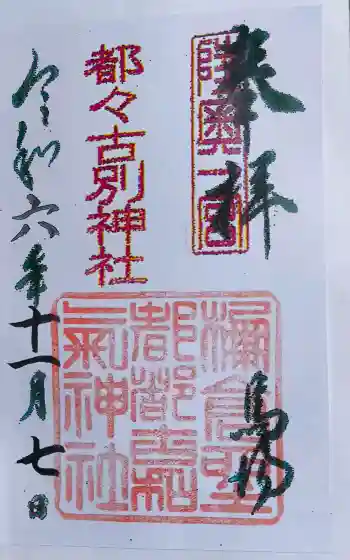 奉拝
陸奥一宮
馬場
都々古別神社
棚倉
都都古和
氣神社
令和六年十一月七日